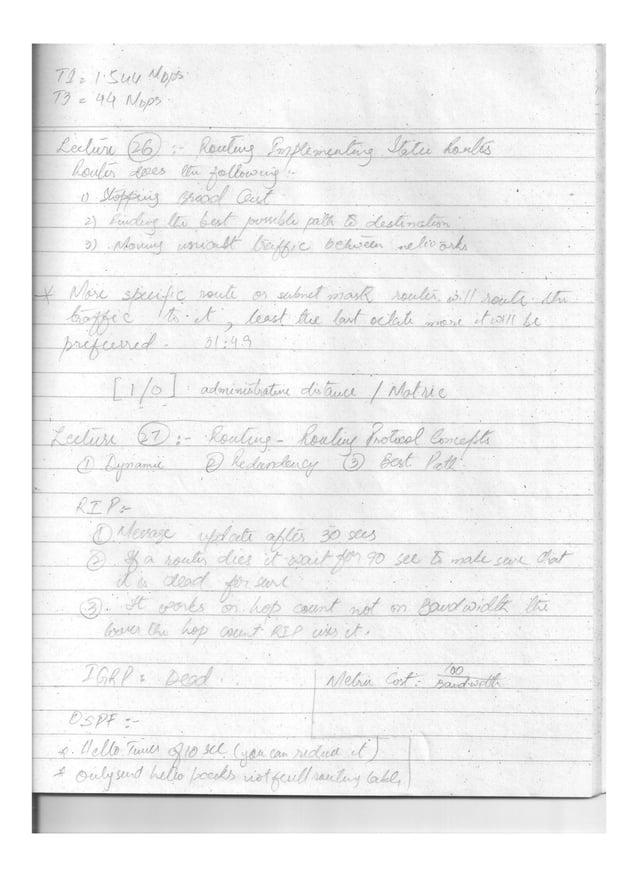 T1 = 1.544 Mbps.
T3 = 44 Mbps.
Lecture 26 :- Routing Implementing Static Routes
Router does the following :-
1) Stopping Broad Cast
2) Finding the best possible path to destination
3) Moving unicast traffic between networks
* More specific route or subnet mask router will route the
traffic to it, least the last octate more it will be
preferred. 31:49
[1/0] administrative distance / Metric
Lecture 27 :- Routing - Routing Protocol Concepts
① Dynamic ② Redundency ③ Best Path.
RIP :-
① Message update after 30 secs
② If a router dies it wait for 90 sec to make sure that
it is dead for sure
③. It works on hop count not on Bandwidth the
lower the hop count RIP uses it.
IGRP = Dead.
Metric Cost :- 100/Bandwidth
OSPF :-
*. Hello Timer of 10 sec (you can reduce it)
* Only send hello packs not full routing table